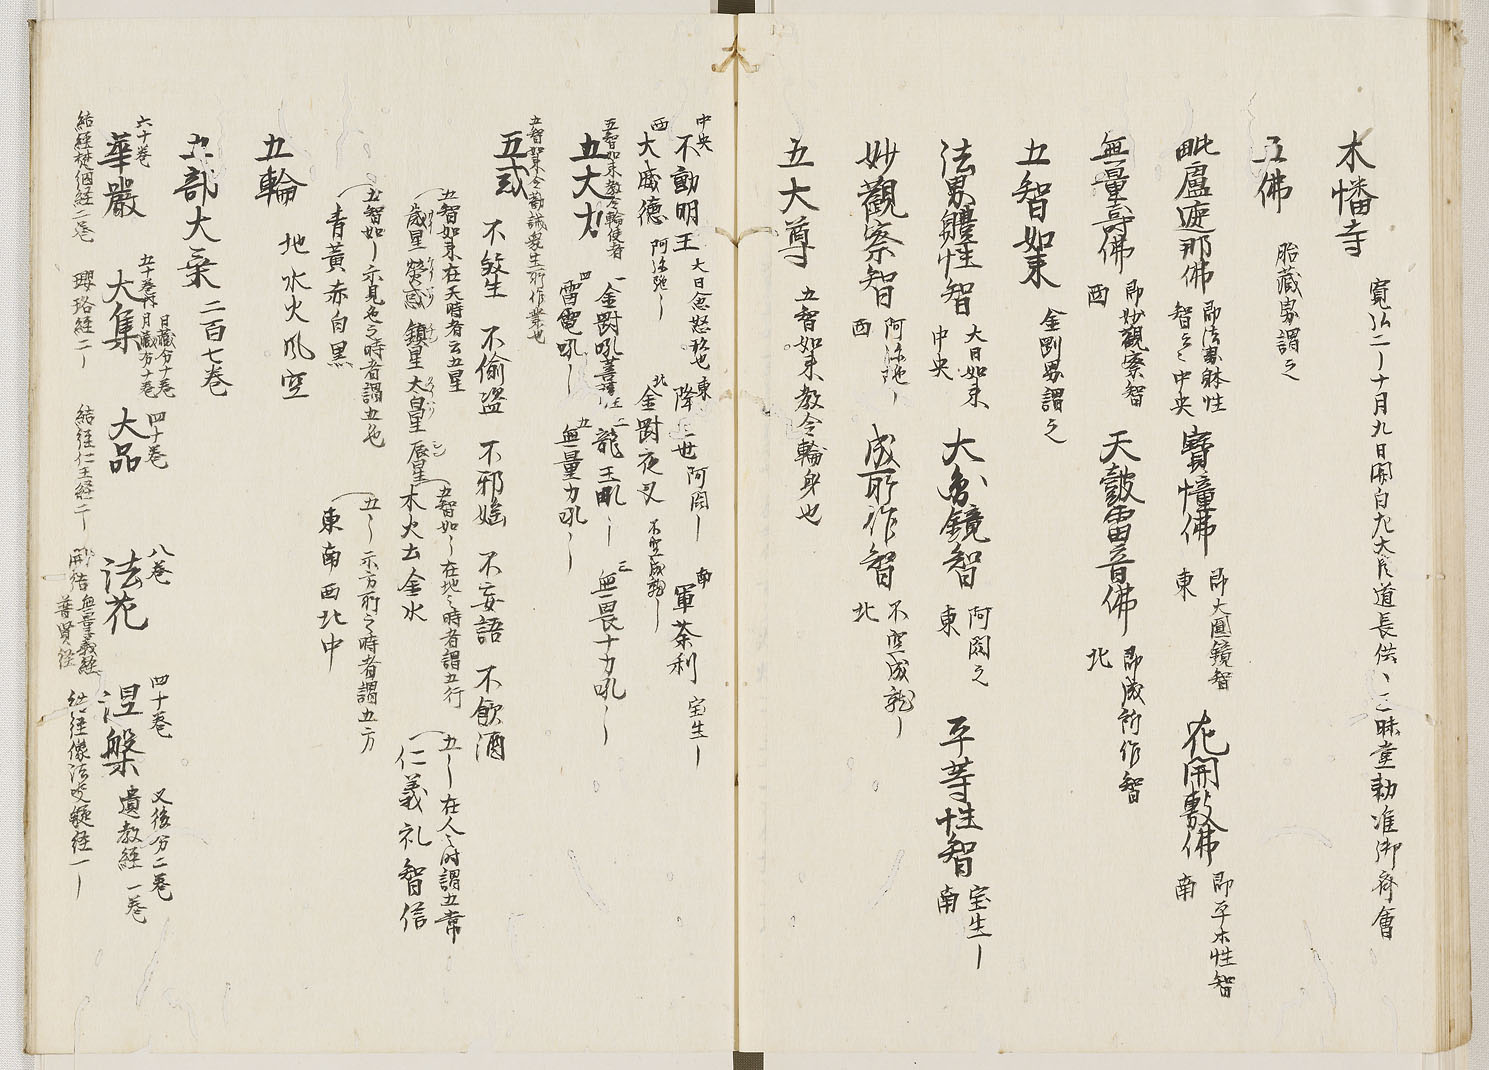 木幡寺
寛弘二ー十月九日開白九大臣道長供、三昧堂勅准御斎會
五佛
胎蔵界謂之
毗盧遮那佛 即法界躰性智云々中央 寶幢佛 即大圓鏡智 東 花開敷佛 即平木性智 南
無量壽佛 即妙觀察智 西 天皷雷音佛 即成所作智 北
五智如来
金剛界謂之
法界體性智 大日如来 中央 大圓鏡智 阿閦之 東 平等性智 宝生ー 南
妙觀察智 阿弥陁ー 西 成所作智 不空成就ー 北
五大尊 五智如来教令輪身也
中央 不動明王 大日忿怒形也 東 降三世 阿閦ー 南 軍荼利 宝生ー
西 大威徳 阿弥陁ー 北 金剛夜叉 不空成就ー
五智如来教令輪使者
五大力 一金剛吼菩薩 二龍王吼ー 三無畏十力吼ー
四雷電吼ー 五無量力吼ー
五智如来令勸誡衆生所作業也
五戒 不煞生 不偸盗 不邪婬 不妄語 不飲酒
五智如来在天時者云五星 五智如ー在地之時者謂五行 五ー在人之時謂五常
歳星 熒惑 鎮星 太白星 辰星 木火土金水 仁義礼智信
五智如ー示見色之時者謂五色 五ー示方所之時者謂五方
青黄赤白黒 東南西北中
五輪 地水火風空
五部大乗 二百七巻
六十巻 華嚴 五十巻 日蔵分十巻 月蔵分十巻 大集 四十巻 大品 八巻 法花 四十巻 涅槃 又後分二巻 遺教經一巻
結経梵網経二巻 瓔珞経二ー 結経仁王経二ー 開結無量義経 普賢経 結経像法决疑経一ー